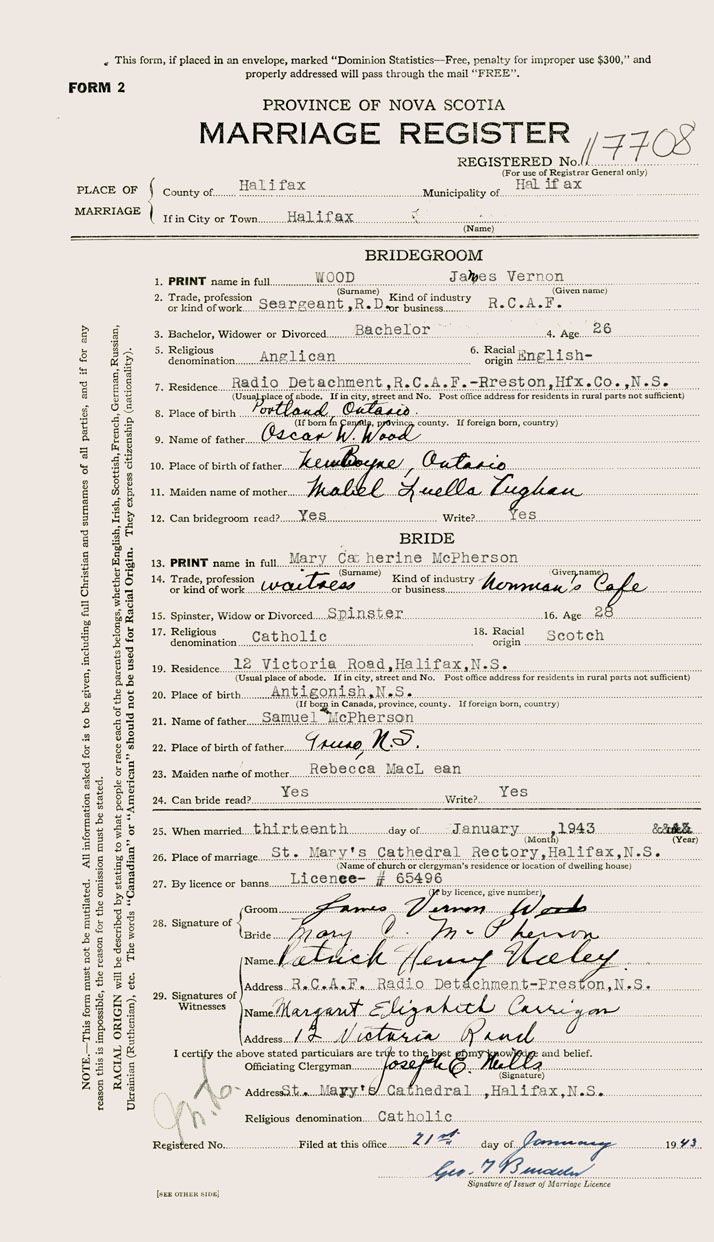 This form, if placed in an envelope, marked "Dominion Statistics—Free, penalty for improper use $300," and
properly addressed will pass through the mail "FREE".
FORM 2
PROVINCE OF NOVA SCOTIA
MARRIAGE REGISTER
REGISTERED No. 117708
(For use of Registrar General only)
PLACE OF MARRIAGE
County of Halifax Municipality of Halifax
If in City or Town Halifax
(Name)
BRIDEGROOM
1. PRINT name in full WOOD James Vernon
(Surname) (Given name)
2. Trade, profession or kind of work Seargeant,R.D. Kind of industry or business R.C.A.F.
3. Bachelor, Widower or Divorced Bachelor 4. Age 26
5. Religious denomination Anglican 6. Racial origin English-
7. Residence Radio Detachment,R.C.A.F.-Rreston,Hfx.Co.,N.S.
(Usual place of abode. If in city, street and No. Post office address for residents in rural parts not sufficient)
8. Place of birth Portland, Ontario.
(If born in Canada, province, county. If foreign born, country)
9. Name of father Oscar W. Wood
10. Place of birth of father Newboyne, Ontario
11. Maiden name of mother Mabel Luella
12. Can bridegroom read? Yes Write? Yes
BRIDE
13. PRINT name in full Mary Ca herine McPherson
(Surname) (Given name)
14. Trade, profession or kind of work waitress Kind of industry or business Norman's Cafe
15. Spinster, Widow or Divorced Spinster 16. Age 28
17. Religious denomination Catholic 18. Racial origin Scotch
19. Residence 12 Victoria Road,Halifax,N.S.
(Usual place of abode. If in city, street and No. Post office address for residents in rural parts not sufficient)
20. Place of birth Antigonish,N.S.
(If born in Canada, province, county. If foreign born, country)
21. Name of father Samuel McPherson
22. Place of birth of father Truro, N.S.
23. Maiden name of mother Rebecca MacL ean
24. Can bride read? Yes Write? Yes
25. When married thirteenth day of January ,1943
(Month) (Year)
26. Place of marriage St. Mary's Cathedral Rectory,Halifax,N.S.
(Name of church or clergyman's residence or location of dwelling house)
27. By licence or banns Licence- # 65496
(If by licence, give number)
28. Signature of
Groom James Vernon Wood
Bride Mary C. McPherson
29. Signatures of Witnesses
Name Patrick Henry
Address R.C.A.F. Radio Detachment-Preston,N.S.
Name Margaret Elizabeth Corrigan
Address 12 Victoria Road
I certify the above stated particulars are true to the best of my knowledge and belief.
Officiating Clergyman Joseph E. Mills
(Signature)
Address St. Mary's Cathedral ,Halifax,N.S.
Religious denomination Catholic
Registered No. Filed at this office 21st day of January 1943
Geo. T
Signature of Issuer of Marriage Licence
[SEE OTHER SIDE]
NOTE.—This form must not be mutilated. All information asked for is to be given, including full Christian and surnames of all parties, and if for any
reason this is impossible, the reason for the omission must be stated.
RACIAL ORIGIN will be described by stating to what people or race each of the parents belongs, whether English, Irish, Scottish, French, German, Russian,
Ukrainian (Ruthenian), etc. The words "Canadian" or "American" should not be used for Racial Origin. They express citizenship (nationality).